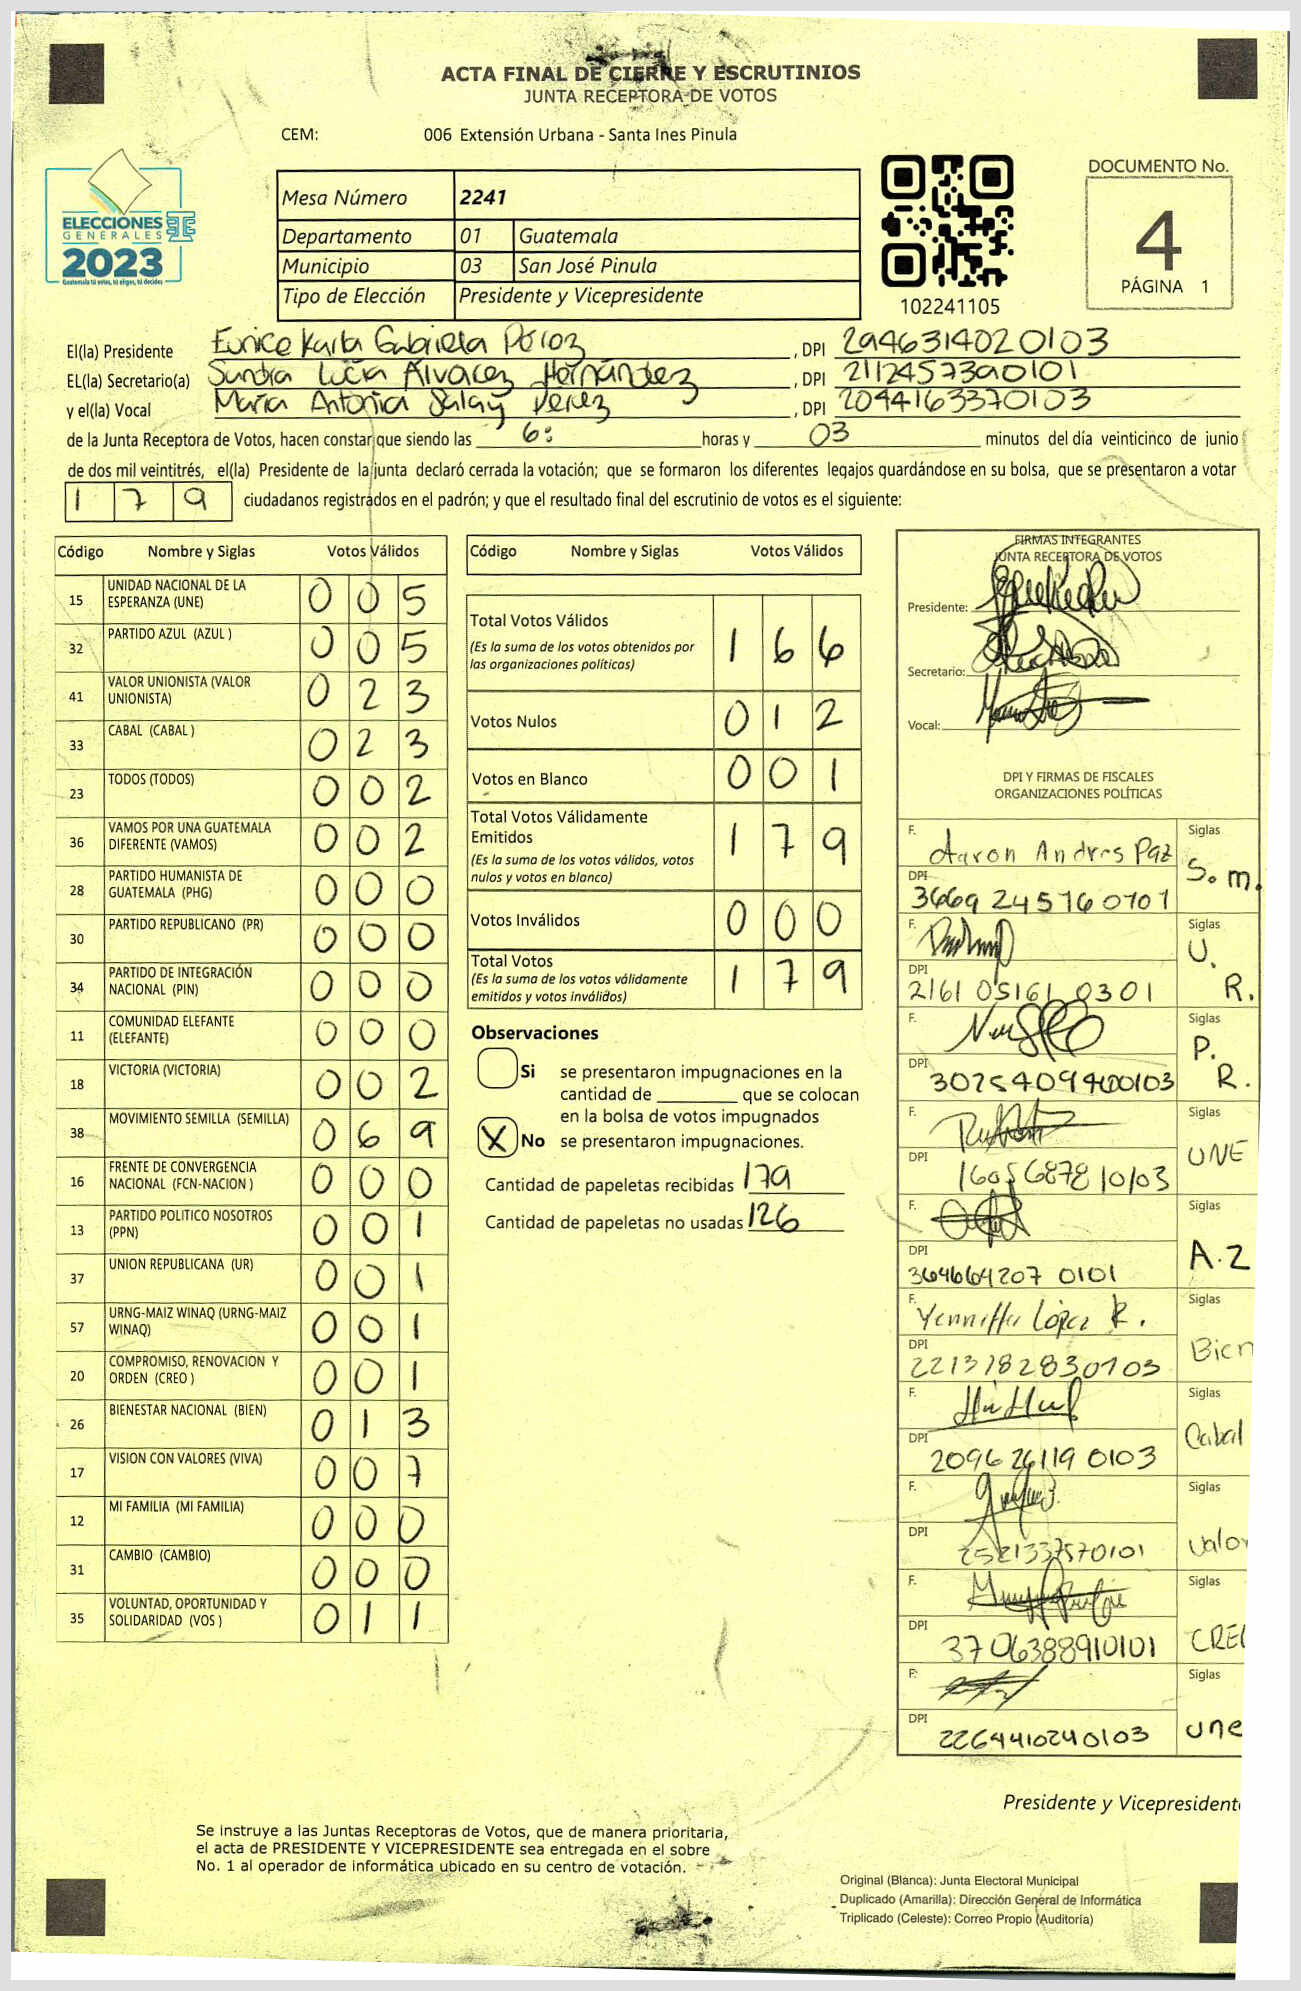 ACTA FINAL DE CIERRE Y ESCRUTINIOS
JUNTA RECEPTORA DE VOTOS
CEM: 006 Extensión Urbana - Santa Ines Pinula
ELECCIONES
GENERALES
2023
Guatemala tú votas, tú eliges, tú decides
Mesa Número 2241
Departamento 01 Guatemala
Municipio 03 San José Pinula
Tipo de Elección Presidente y Vicepresidente
102241105
DOCUMENTO No.
4
PÁGINA 1
El(la) Presidente Eunice Karla Gabriela Pérez , DPI 2946314020103
EL(la) Secretario(a) Sandra Lucia Álvarez Hernández , DPI 2112457390101
y el(la) Vocal Maria Antonia Salay Perez , DPI 2044163370103
de la Junta Receptora de Votos, hacen constar que siendo las 6: horas y 03 minutos del día veinticinco de junio
de dos mil veintitrés, el(la) Presidente de la junta declaró cerrada la votación; que se formaron los diferentes legajos guardándose en su bolsa, que se presentaron a votar
179 ciudadanos registrados en el padrón; y que el resultado final del escrutinio de votos es el siguiente:
Código Nombre y Siglas Votos Válidos
15 UNIDAD NACIONAL DE LA ESPERANZA (UNE) 005
32 PARTIDO AZUL (AZUL ) 005
41 VALOR UNIONISTA (VALOR UNIONISTA) 023
33 CABAL (CABAL ) 023
23 TODOS (TODOS) 002
36 VAMOS POR UNA GUATEMALA DIFERENTE (VAMOS) 002
28 PARTIDO HUMANISTA DE GUATEMALA (PHG) 000
30 PARTIDO REPUBLICANO (PR) 000
34 PARTIDO DE INTEGRACIÓN NACIONAL (PIN) 000
11 COMUNIDAD ELEFANTE (ELEFANTE) 000
18 VICTORIA (VICTORIA) 002
38 MOVIMIENTO SEMILLA (SEMILLA) 069
16 FRENTE DE CONVERGENCIA NACIONAL (FCN-NACION ) 000
13 PARTIDO POLITICO NOSOTROS (PPN) 001
37 UNION REPUBLICANA (UR) 001
57 URNG-MAIZ WINAQ (URNG-MAIZ WINAQ) 001
20 COMPROMISO, RENOVACION Y ORDEN (CREO ) 001
26 BIENESTAR NACIONAL (BIEN) 013
17 VISION CON VALORES (VIVA) 007
12 MI FAMILIA (MI FAMILIA) 000
31 CAMBIO (CAMBIO) 000
35 VOLUNTAD, OPORTUNIDAD Y SOLIDARIDAD (VOS ) 011
Código Nombre y Siglas Votos Válidos
Total Votos Válidos 166
(Es la suma de los votos obtenidos por
las organizaciones políticas)
Votos Nulos 012
Votos en Blanco 001
Total Votos Válidamente
Emitidos 179
(Es la suma de los votos válidos, votos
nulos y votos en blanco)
Votos Inválidos 000
Total Votos 179
(Es la suma de los votos válidamente
emitidos y votos inválidos)
Observaciones
Si se presentaron impugnaciones en la
cantidad de ________ que se colocan
en la bolsa de votos impugnados
X No se presentaron impugnaciones.
Cantidad de papeletas recibidas 179
Cantidad de papeletas no usadas 126
FIRMAS INTEGRANTES
JUNTA RECEPTORA DE VOTOS
Presidente:
Secretario:
Vocal:
DPI Y FIRMAS DE FISCALES
ORGANIZACIONES POLÍTICAS
F. Aaron Andres Paz Siglas S.m.
DPI 3669 24576 0101
F. Siglas U. R.
DPI 2161 05161 0301
F. Siglas P. R.
DPI
F. Siglas UNE
DPI 16056878 10103
F. Siglas A.Z
DPI 364664207 0101
F. Yenniffer López R. Siglas Bien
DPI 2213782830103
F. Siglas Cabal
DPI 2096 26119 0103
F. Siglas Valor
DPI 2521337570101
F. Siglas CREO
DPI 3706388910101
F. Siglas une
DPI 2264410240103
Presidente y Vicepresidente
Se instruye a las Juntas Receptoras de Votos, que de manera prioritaria,
el acta de PRESIDENTE Y VICEPRESIDENTE sea entregada en el sobre
No. 1 al operador de informática ubicado en su centro de votación.
Original (Blanca): Junta Electoral Municipal
Duplicado (Amarilla): Dirección General de Informática
Triplicado (Celeste): Correo Propio (Auditoría)